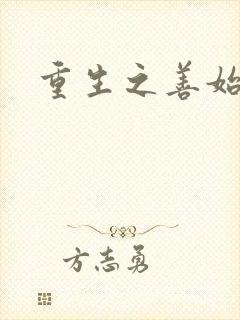 重生之善始
方志勇